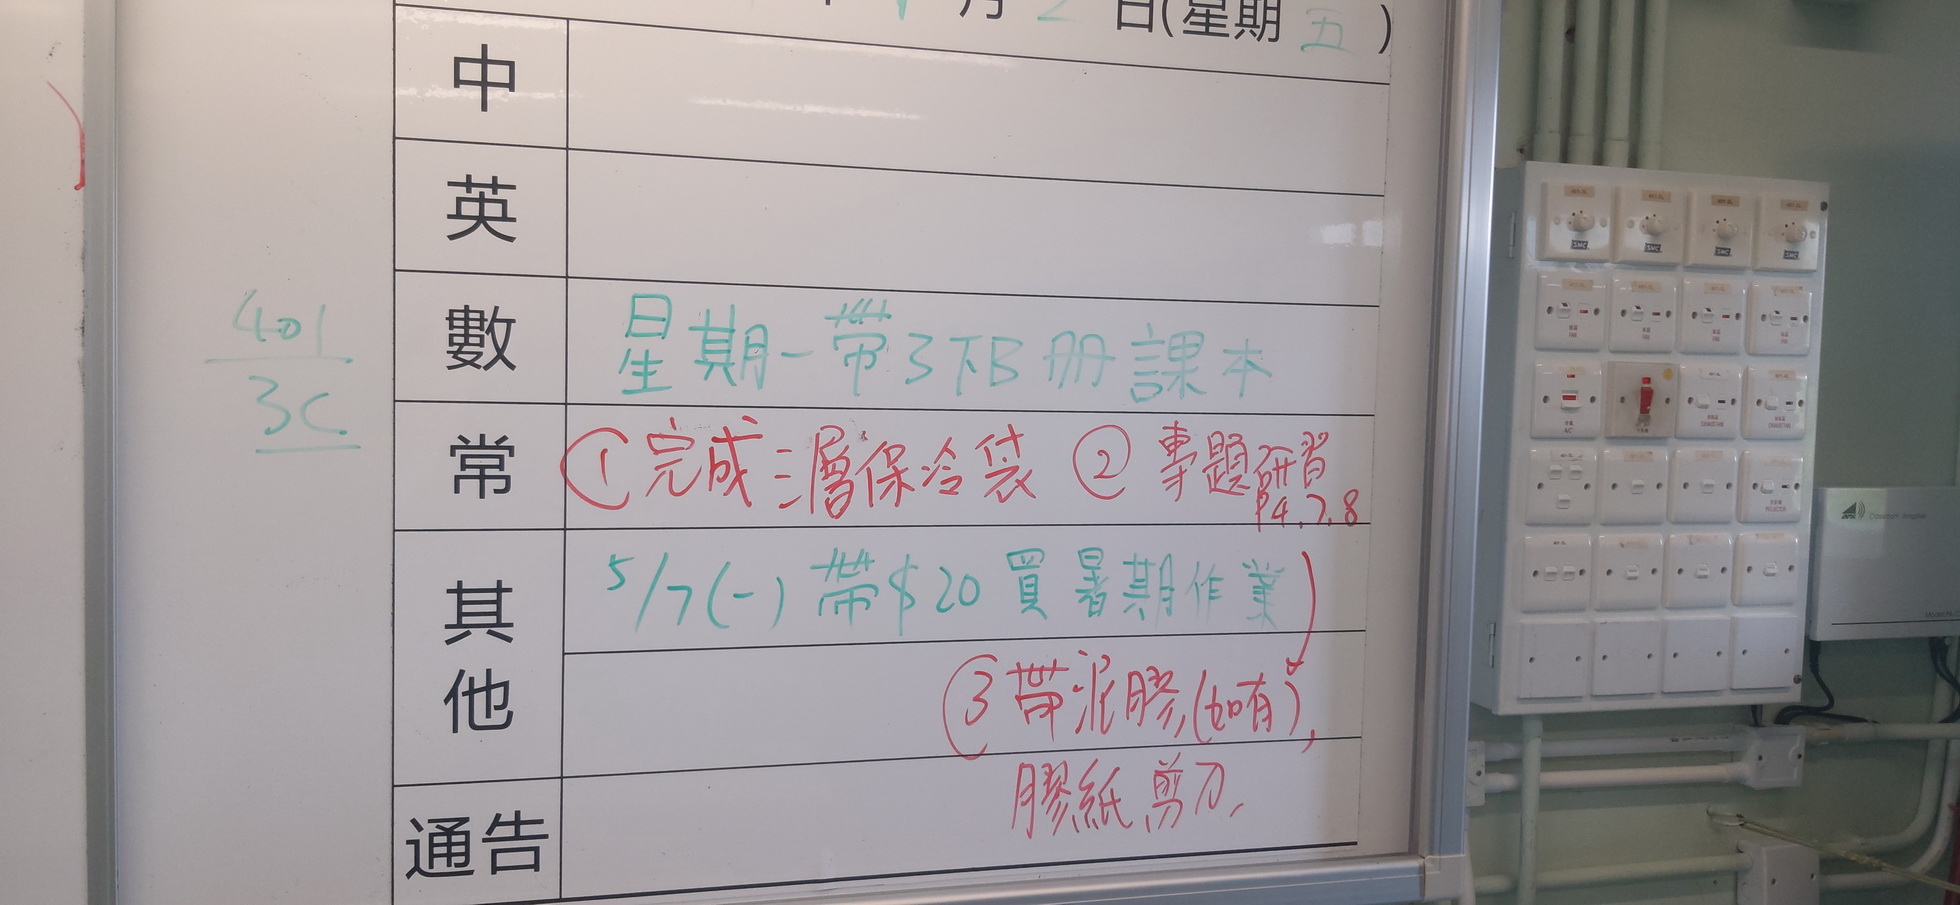 月2日(星期五)
中
英
數 星期一帶3下B冊課本
401
3C
常 ①完成三層保冷袋 ②專題研習
P4.7.8
其他 5/7(一)帶$20買暑期作業
③帶泥膠(如有),
膠紙剪刀,
通告